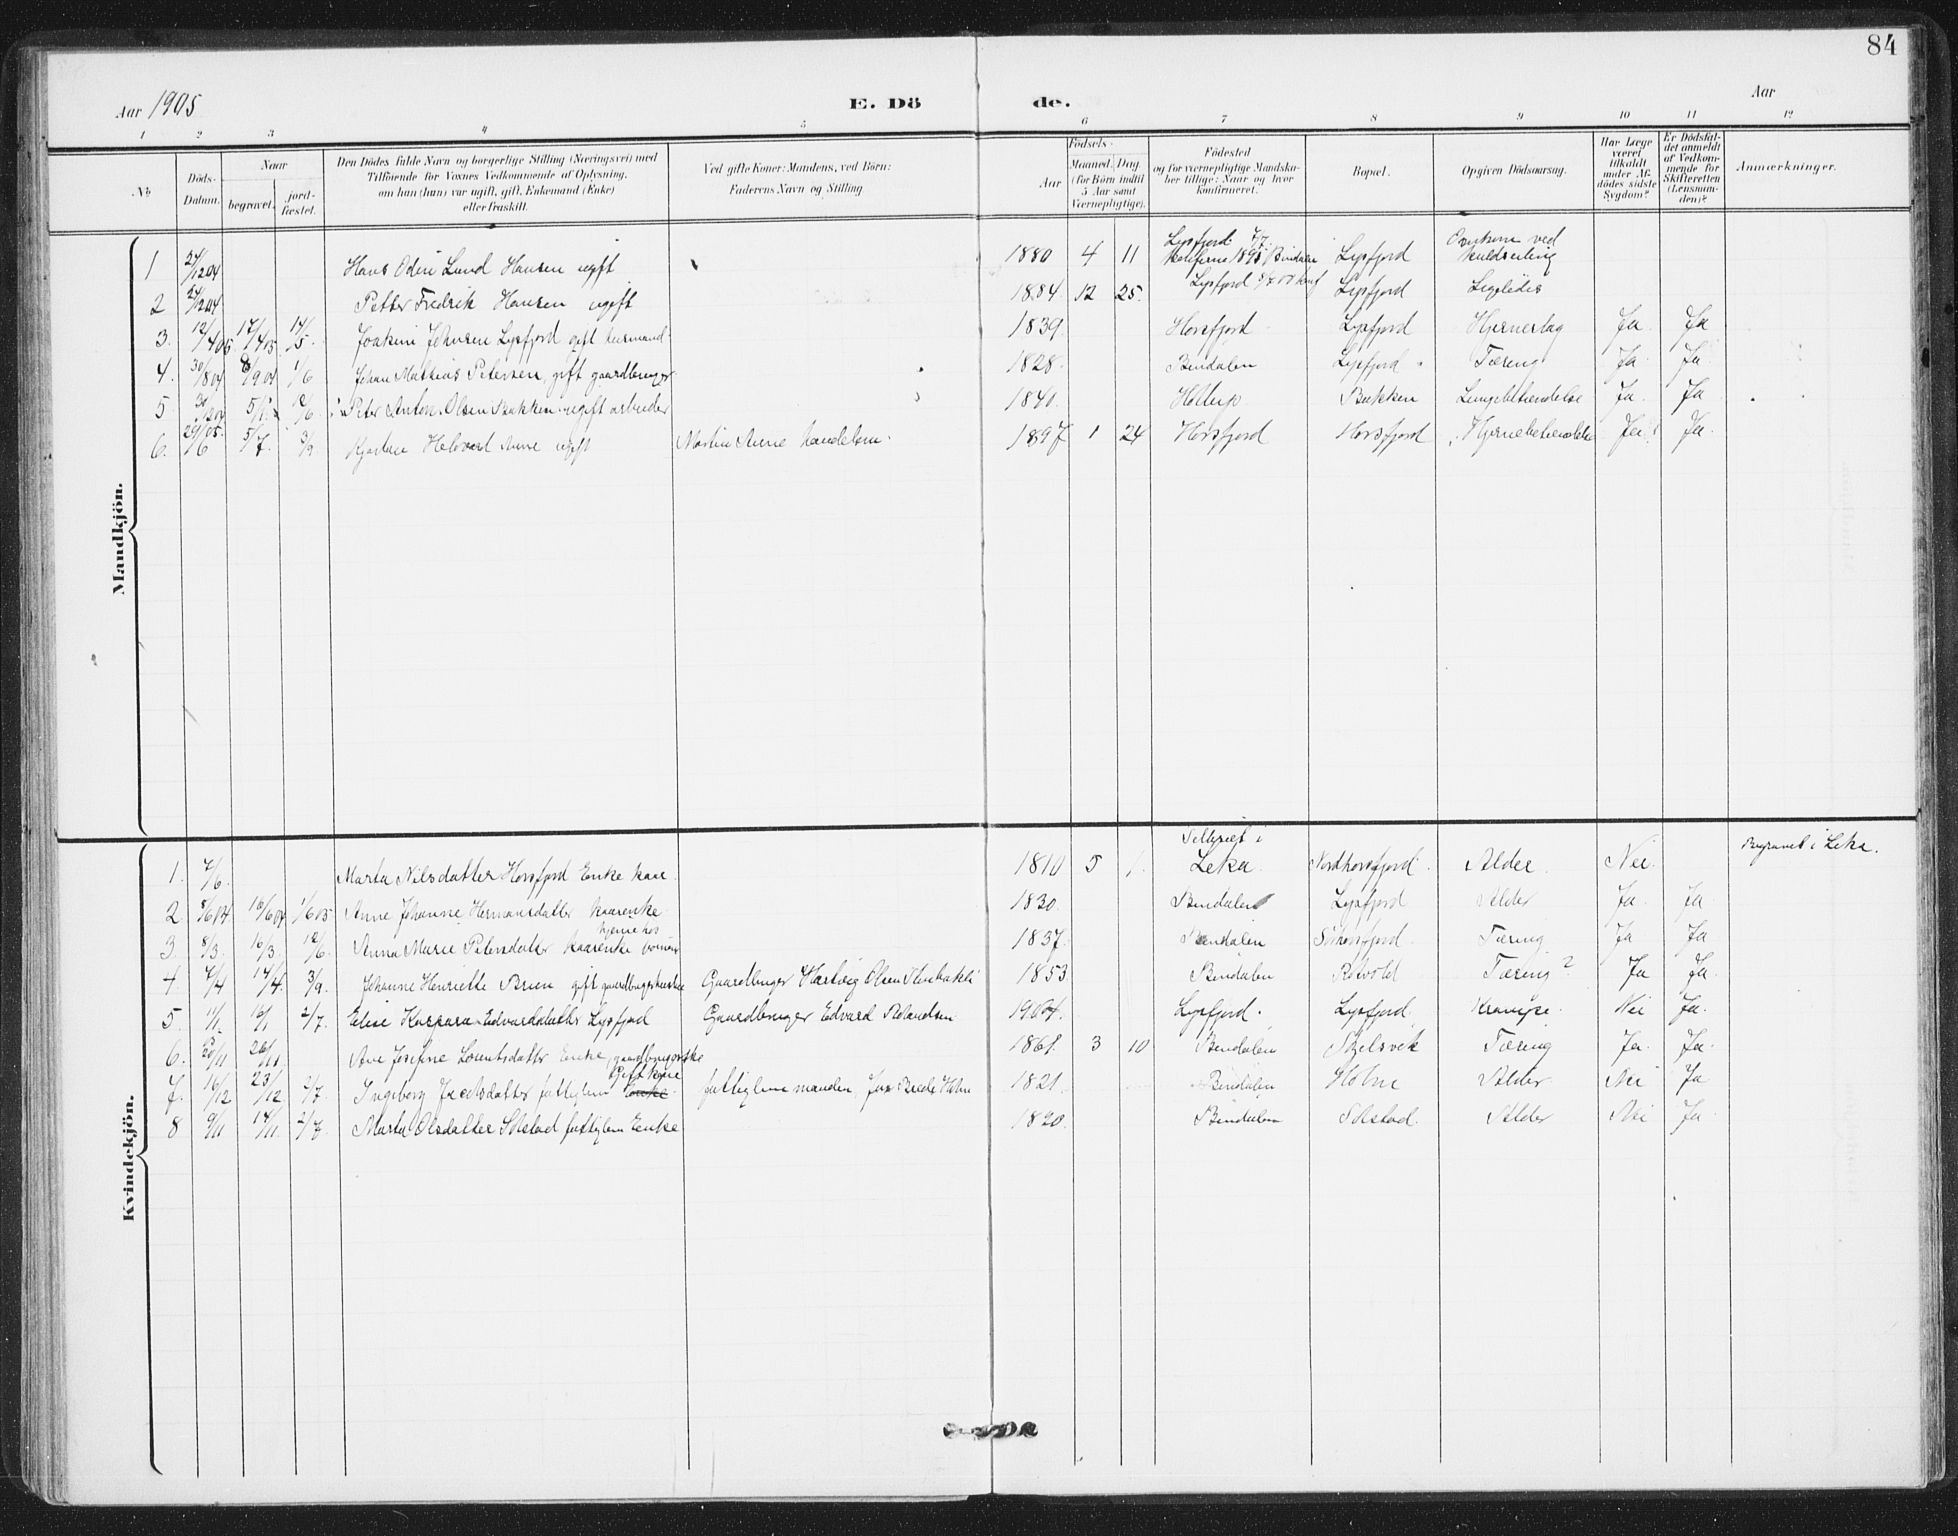 84
Aar 1905
E. Dö
de.
Aar
1 2 3 4 5 6 7 8 9 10 11 12
No.
Döds-Datum.
Naar
begravet.
jord-fæstet.
Den Dödes fulde Navn og borgerlige Stilling (Næringsvei) med
Tilføiende for Voxnes Vedkommende af Oplysning,
om han (hun) var ugift, gift, Enkemand (Enke)
eller fraskilt.
Ved gifte Koner: Mandens, ved Börn:
Faderens Navn og Stilling
Födsels-
Aar
Maaned. Dag.
(for Börn indtil
5 Aar samt
Værnepligtige).
Födested
og for værnepligtige Mandska-
ber tillige: Naar og hvor
konfirmeret.
Bopæl.
Opgiven Dödsaarsag.
Har Læge
været
tilkaldt
under Af-
dödes sidste
Sygdom?
Er Dödsfal-
det anmeldt
af Vedkom-
mende for
Skifteretten
(Lensman-
den)?
Anmærkninger.
Mandkjön.
1 24/12 04 Hans Odin Lund Hansen ugift 1880 4 11 Lysfjord 1895 Bindalen Lysfjord Omkom ved kuldseiling
2 24/12 04 Petter Fredrik Hansen ugift 1884 12 25. Lysfjord Lysfjord Ligeledes
3. 12/4 05 17/4 05 14/5 Joakim Johnsen Lysfjord gift husmand 1839 Horsfjord Lysfjord Hjerneslag Ja Ja
4. 30/8 04 8/9 04 1/6 Johan Mathias Petersen, gift gaardbruger 1828 Bindalen Lysfjord Tæring Ja Ja
5 12/6 Peter Anton Olsen Bakken ugift arbeider 1840 Bakken Lungebetændelse Ja Ja
6. 29/6 05 5/7 3/9 Helvard Anne ugift Martin Anne handelsm. 1897 1 24 Horsfjord Horsfjord Hjernebetændelse Ja Ja
Kvindekjön.
1. 7/6 Marta Nilsdatter Horsfjord Enke kaar 1810 5 1. Leka Nordhorsfjord Alder Nei Begravet i Leka.
2 8/6 04 16/6 04 1/6 05 Anne Johanne Hermansdatter kaarenke 1830 Bindalen Lysfjord Alder Ja Ja
3. 8/3. 16/3 12/6 Anna Marie Petersdatter kaarenke 1837 Bindalen Sörhorsfjord Tæring Ja Ja
4 7/4 14/4 3/9. Johanne Henriette Brun gift gaardbrugerkone Gaardbruger Hartvig Olsen 1853 Bindalen Tæring? Ja Ja
5 11/1 16/1 2/7. Elise Kaspara Edvardsdatter Lysfjord Gaardbruger Edvard Rolandsen 1904 Lysfjord Lysfjord Krampe Nei Ja
6. 20/11 26/11 Ane Josefine Lorentsdatter Enke, gaardbrugerske 1861 3 10 Bindalen Tæring Ja Ja
7. 16/12 23/12 2/7 Ingeborg Jacobsdatter fattiglem Enke Gift kone fattiglemmanden 1821 Bindalen Holm Alder Nei Ja
8 9/11 14/11 2/7 Marta Olsdatter Solstad fattiglem Enke 1820 Bindalen Solstad Alder Nei Ja